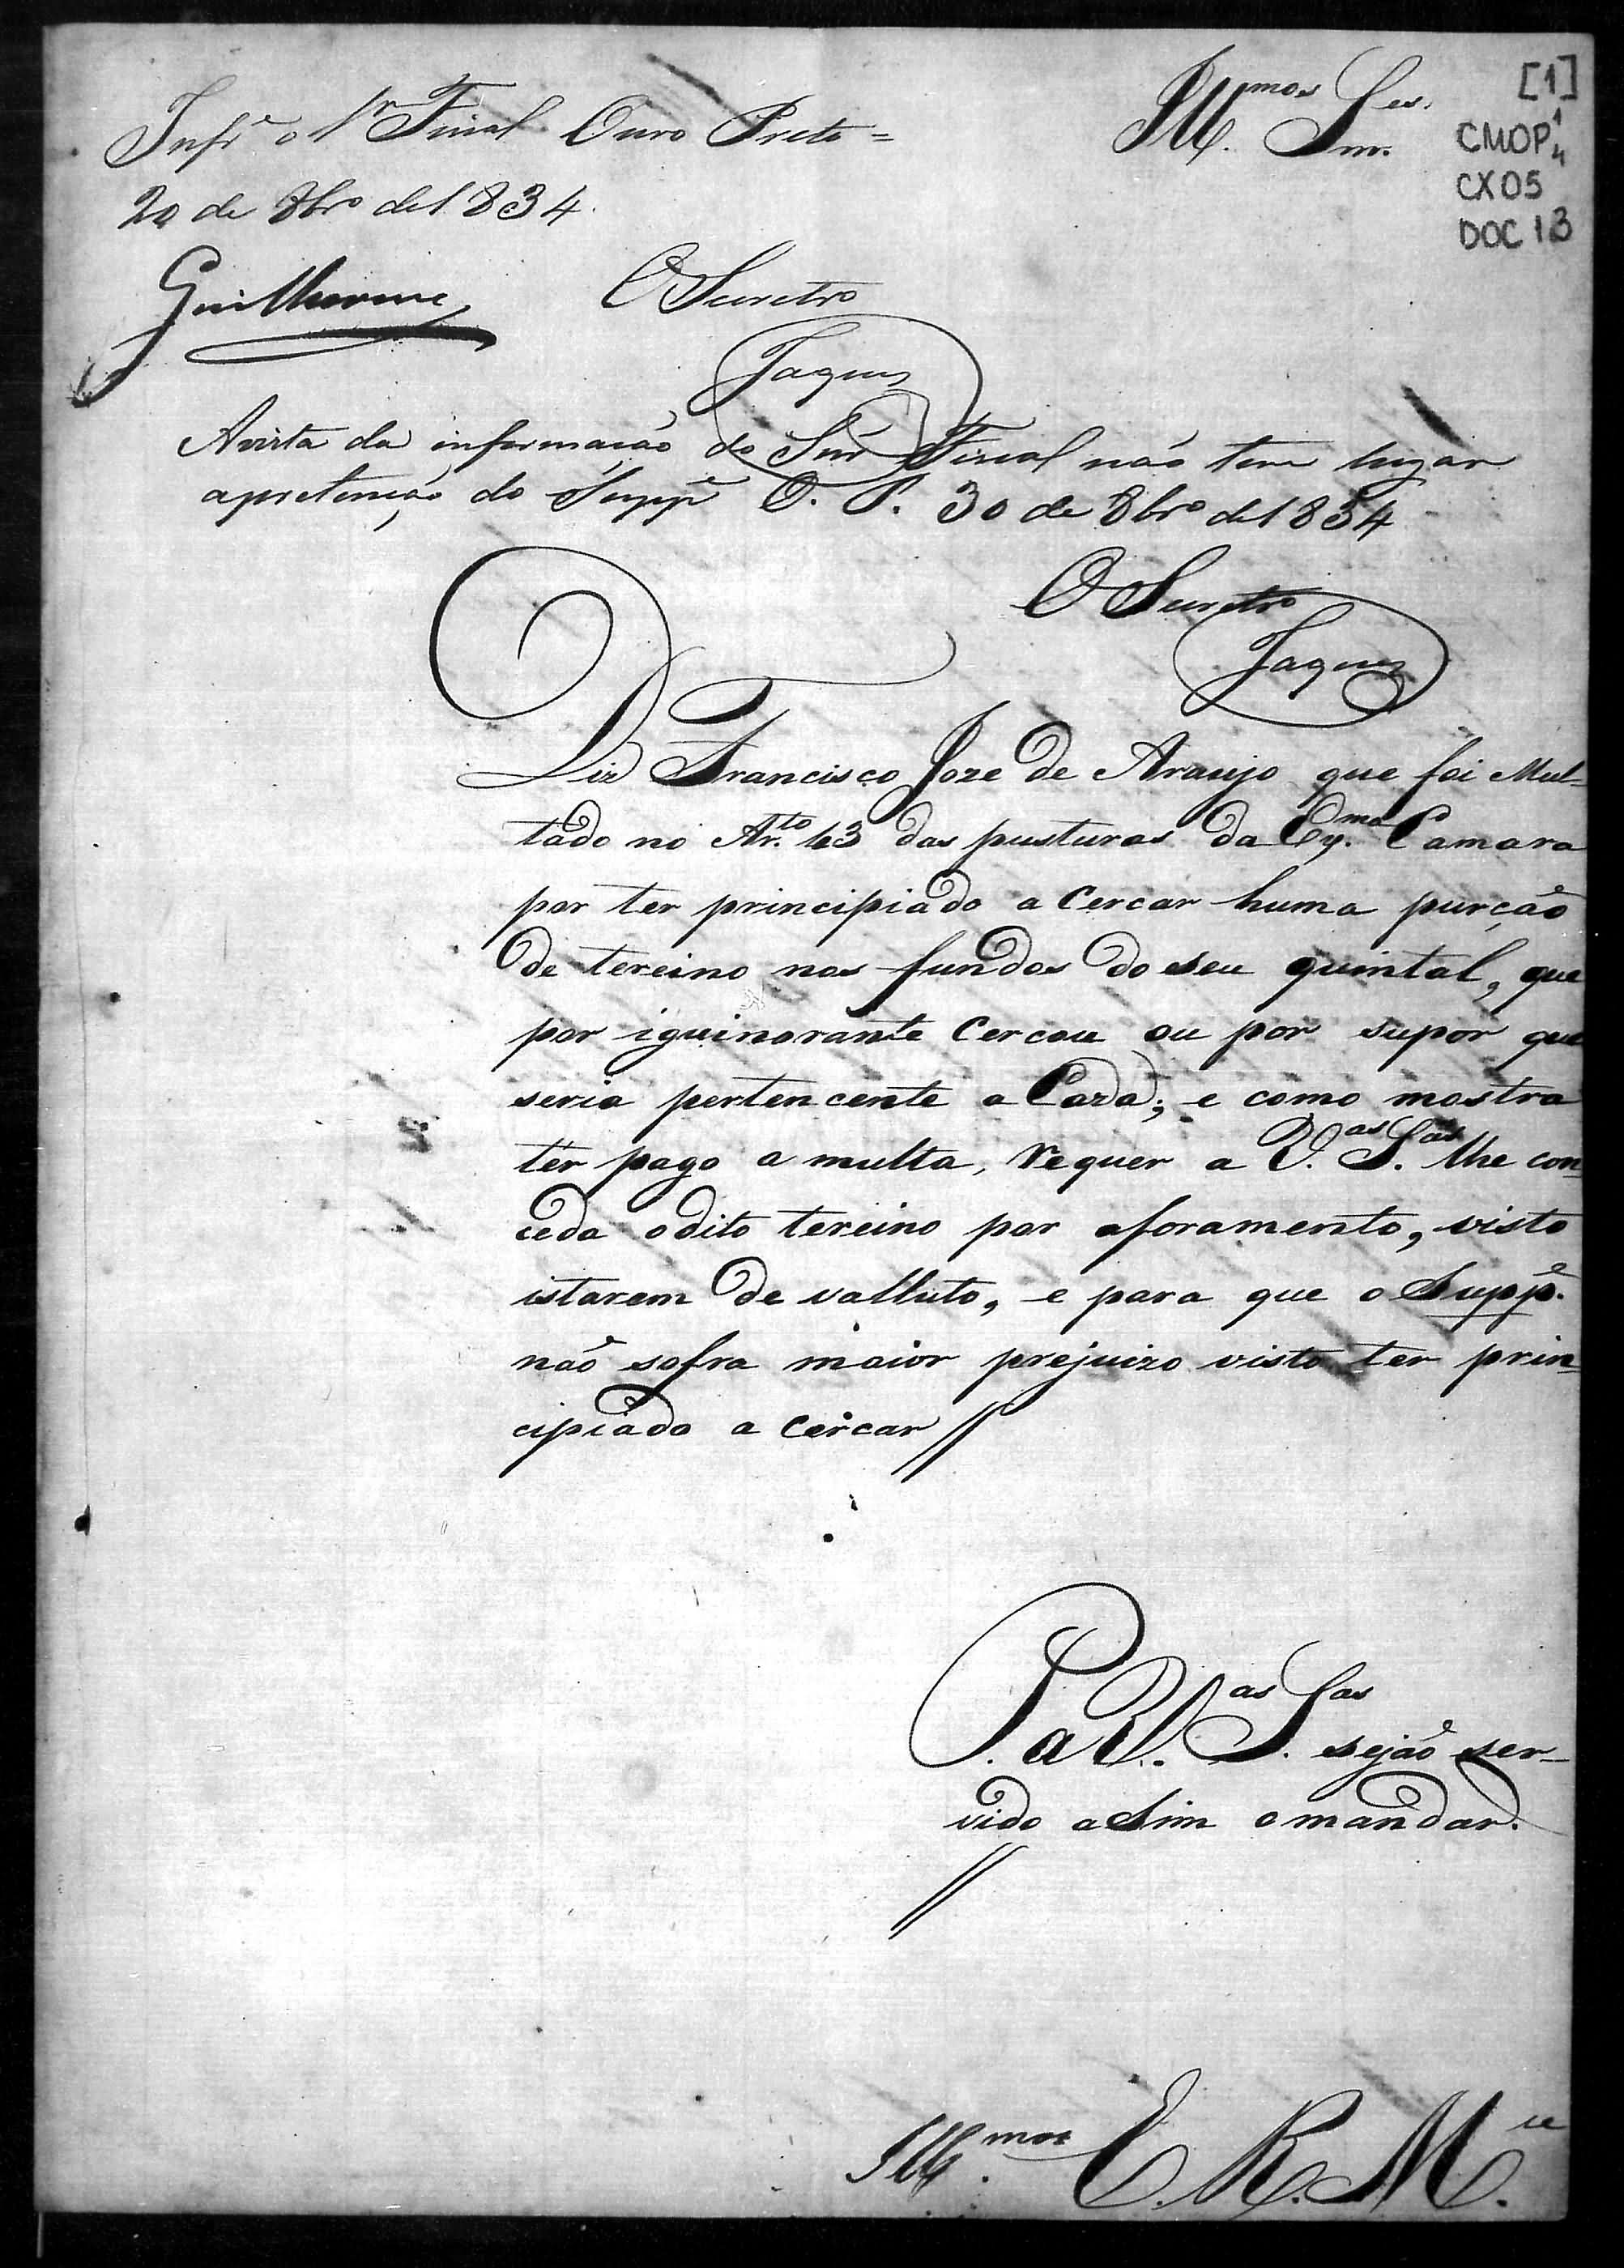 Ill.mos Snr.es
[1]
CMOP
CX05
DOC 13
Infr.e o Snr Fiscal Ouro Preto =
20 de 8br.o de 1834.
Guilherme
O Secretr.o
Jaques
Avista da informação do Snr Fiscal não tem lugar
apretenção do Supp.e O. P. 30 de 8br.o de 1834
O Secretr.o
Jaques
Diz Francisco Joze de Araujo que foi Mul-
tado no Ar.to 63 das pusturas da Camara
por ter principiado a Cercar huma purção
de tereino nos fundos do seu quintal, que
por iguinorante Cercou ou por supor que
seria pertencente a Caza; e como mostra
ter pago a multa, requer a V.as S.as lhe con-
ceda odito tereino por aforamento, visto
istarem de valluto, e para que o Supp.e
não sofra maior prejuizo visto ter prin-
cipiado a Cercar //
P. a V.as S.as sejão ser-
vido aSim omandar.
//
Ill.mos E. R. M.ce